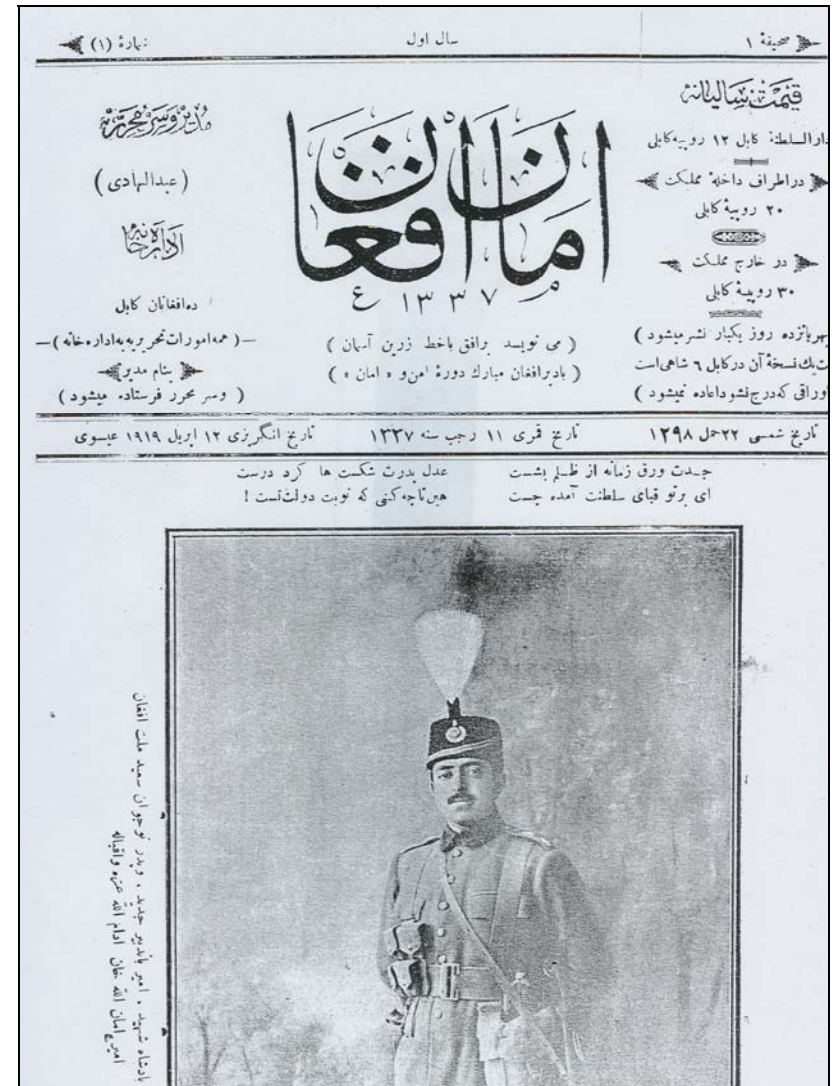 صحیفهٔ ۱
سال اول
نمارهٔ (۱)
قیمت سالیانه
دارالسلطنهٔ کابل ۱۲ روپیه کابلی
در اطراف داخلهٔ مملکت
۲۰ روپیهٔ کابلی
در خارج مملکت
۳۰ روپیهٔ کابلی
بهر پانزده روز یکبار نشر میشود )
یک نسخهٔ آن در کابل ٦ شاهی است
اوراقی که درج نشود اعاده نمیشود )
امان افغان
۱۳۳۷
( می نویسد برافق باخط زرین آسمان )
( باد بر افغان مبارك دورهٔ امن و « امان » )
مدیر و سر محرر
(عبدالهادی)
اداره خانه
ده افغانان کابل
—( همه امورات تحریریه به اداره خانه )—
بنام مدیر
( وسر محرر فرستاده میشود )
تاریخ شمسی ۲۲ حمل ۱۲۹۸
تاریخ قمری ۱۱ رجب سنه ۱۳۳۷
تاریخ انگریزی ۱۲ اپریل ۱۹۱۹ عیسوی
جدت ورق زمانه از ظلم بشست
عدل پدرت شکست ها کرد درست
ای برتو قبای سلطنت آمده چست
هین تا چه کنی که نوبت دولت تست !
پادشاه شهید ، امیر باتدبیر جدید ، وپدر نوجوان سعید ملت افغان
امیر امان الله خان ادام الله عزه واقباله